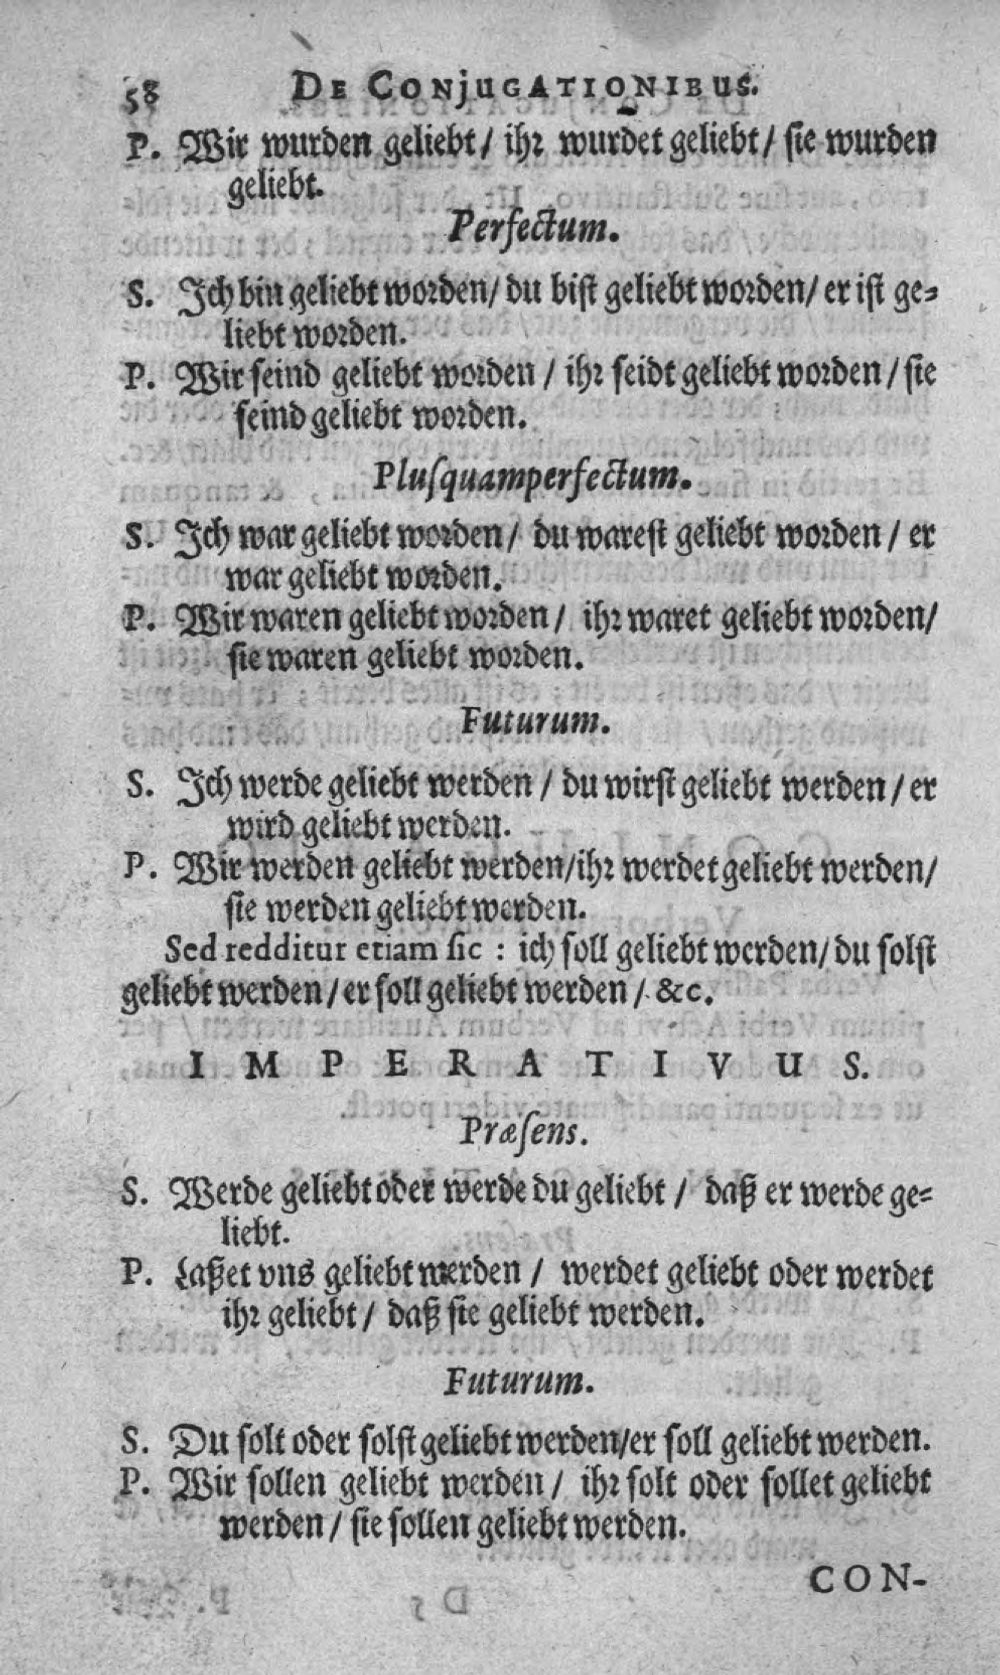 58 DE CONjUGATIONIBUS.
P. Wir wurden geliebt / ihr wurdet geliebt / sie wurden
geliebt.
Perfectum.
S. Ich bin geliebt worden / du bist geliebt worden / er ist ge-
liebt worden.
P. Wir seind geliebt worden / ihr seidt geliebt worden / sie
seind geliebt worden.
Plusquamperfectum.
S. Ich war geliebt worden / du warest geliebt worden / er
war geliebt worden.
P. Wir waren geliebt worden / ihr waret geliebt worden /
sie waren geliebt worden.
Futurum.
S. Ich werde geliebt werden / du wirst geliebt werden / er
wird geliebt werden.
P. Wir werden geliebt werden / ihr werdet geliebt werden /
sie werden geliebt werden.
Sed redditur etiam sic : ich soll geliebt werden / du solst
geliebt werden / er soll geliebt werden / &c.
IMPERATIVUS.
Præsens.
S. Werde geliebt oder werde du geliebt / daß er werde ge-
liebt.
P. Laßet vns geliebt werden / werdet geliebt oder werdet
ihr geliebt / daß sie geliebt werden.
Futurum.
S. Du solt oder solst geliebt werden / er soll geliebt werden.
P. Wir sollen geliebt werden / ihr solt oder sollet geliebt
werden / sie sollen geliebt werden.
CON-